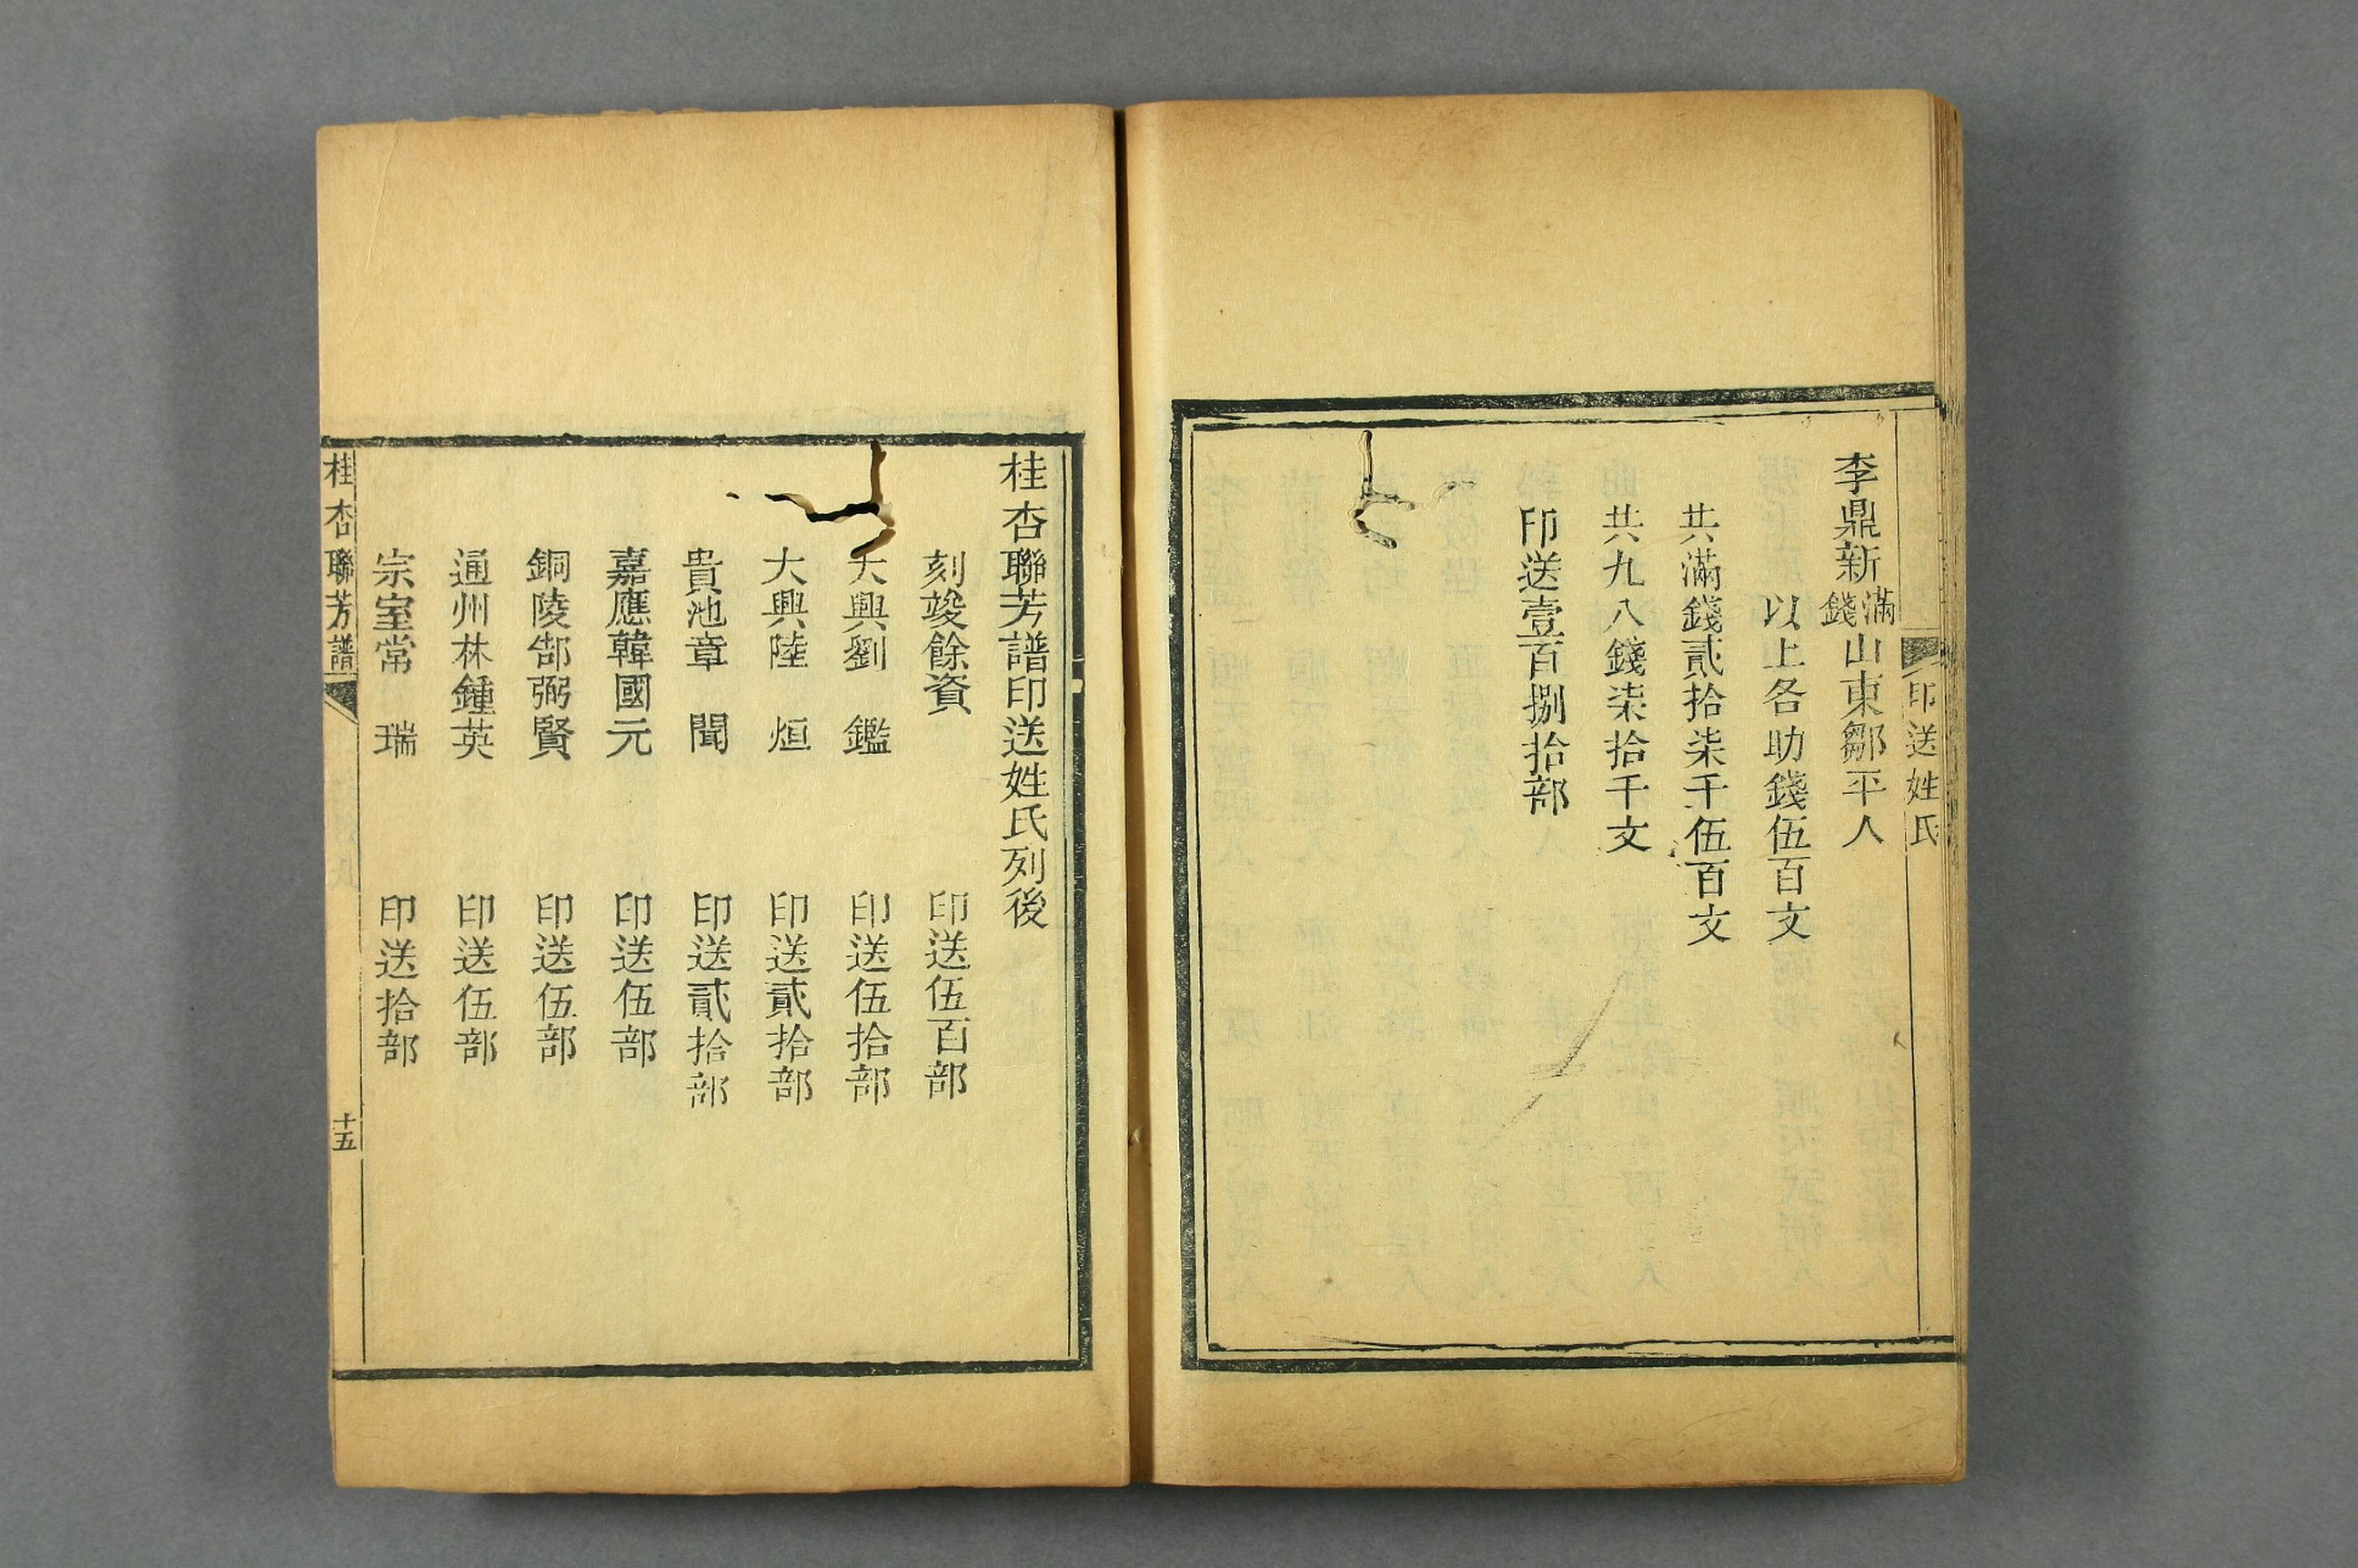 印送姓氏
李鼎新滿錢山東鄒平人
以上各助錢伍百文
共滿錢貳拾柒千伍百文
共九八錢柒拾千文
印送壹百捌拾部
桂杏聯芳譜印送姓氏列後
刻竣餘資 印送伍百部
大興劉 鑑 印送伍拾部
大興陸 烜 印送貳拾部
貴池章 聞 印送貳拾部
嘉應韓國元 印送伍部
銅陵郜弼賢 印送伍部
通州林鍾英 印送伍部
宗室常 瑞 印送拾部
桂杏聯芳譜 十五